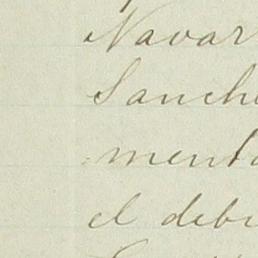 Navar
Sanche
menta
el debi